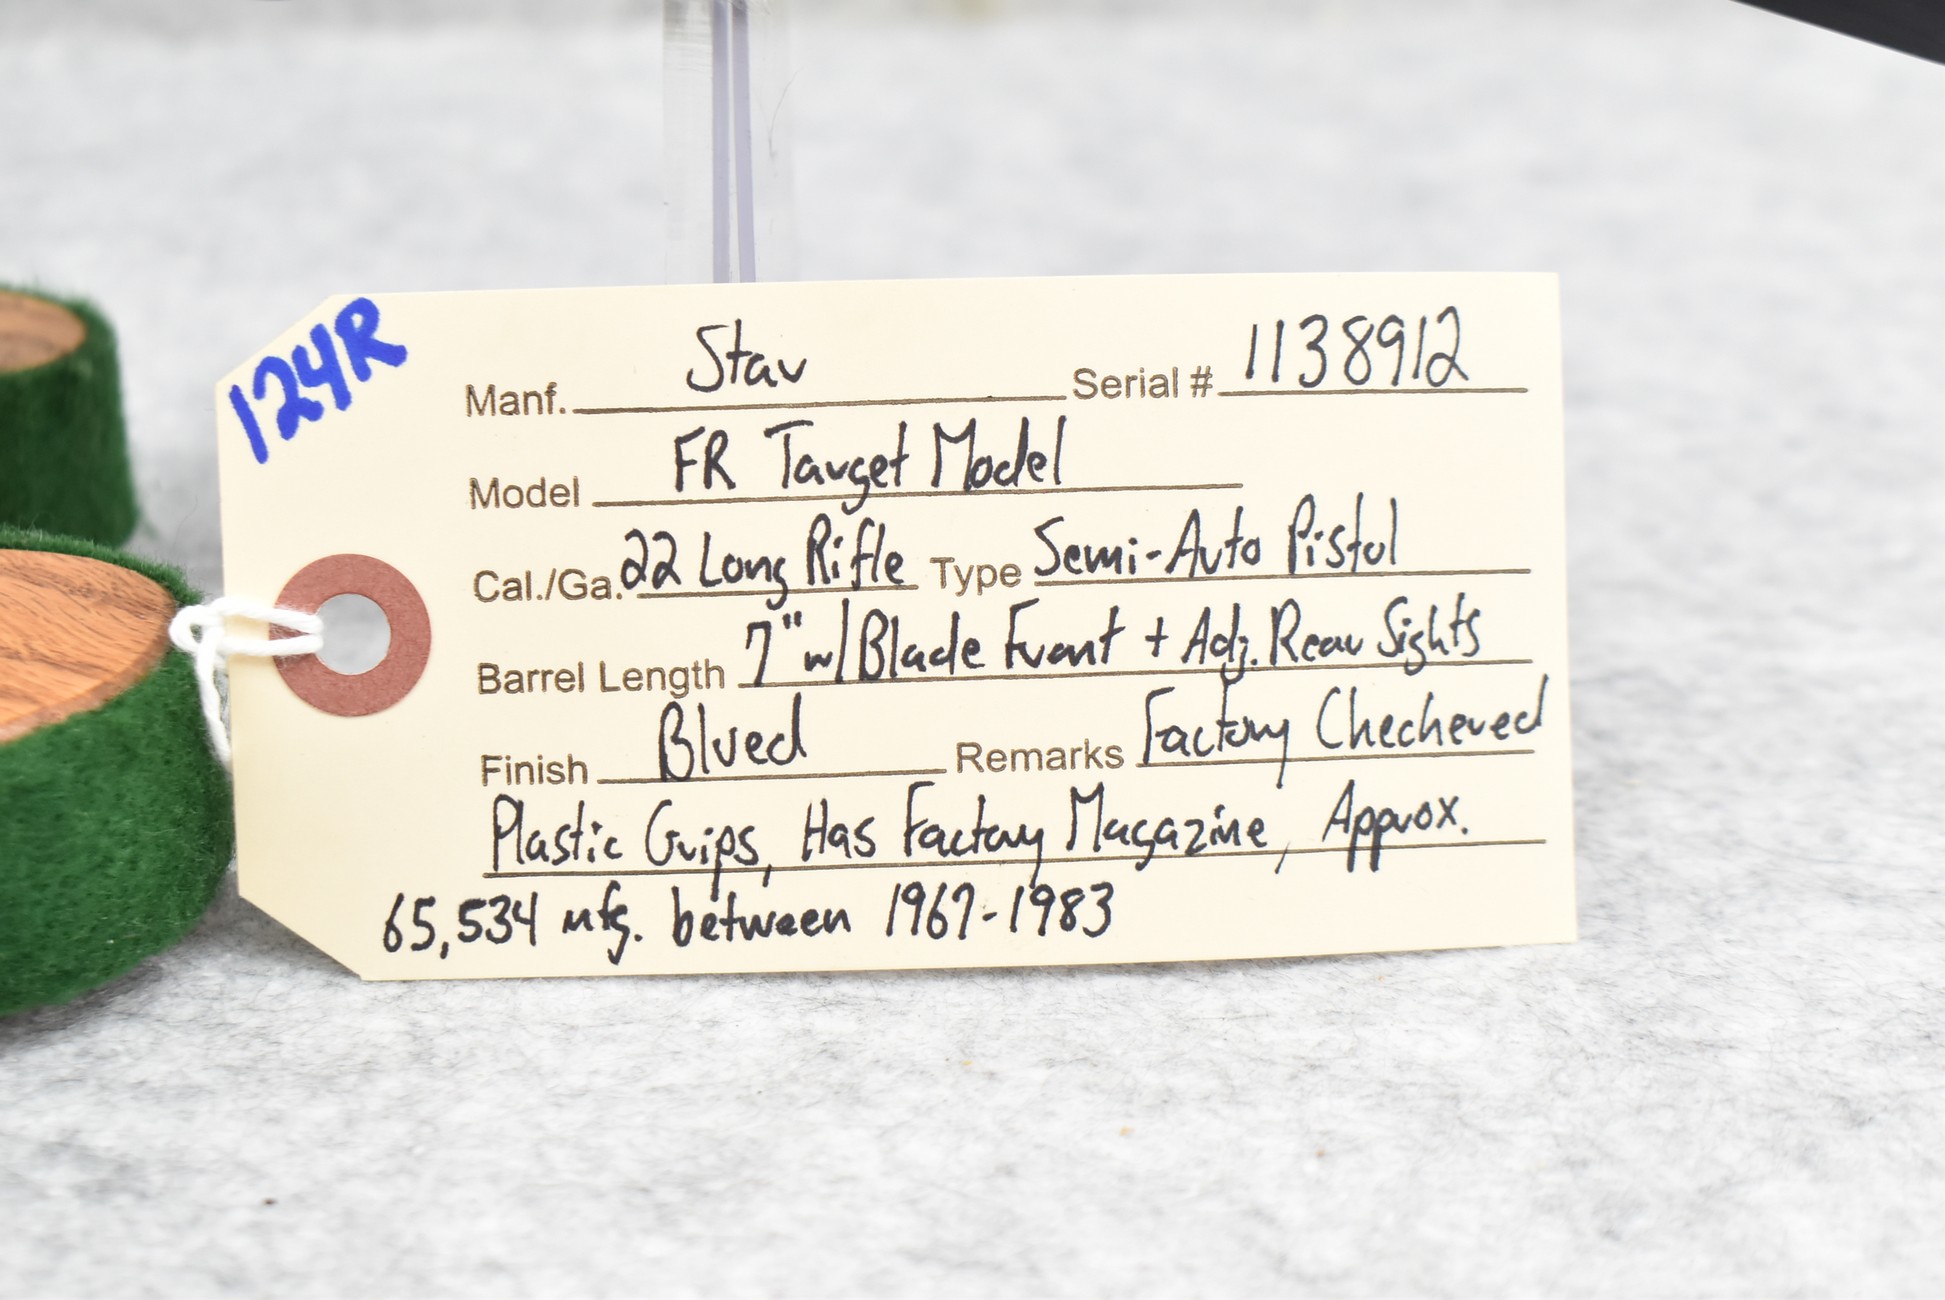 124R
Manf. Star Serial # 1138912
Model FR Target Model
Cal./Ga. 22 Long Rifle Type Semi-Auto Pistol
Barrel Length 7" w/ Blade Front + Adj. Rear Sights
Finish Blued Remarks Factory Checkered
Plastic Grips, Has Factory Magazine, Approx.
65,534 mfg. between 1967-1983